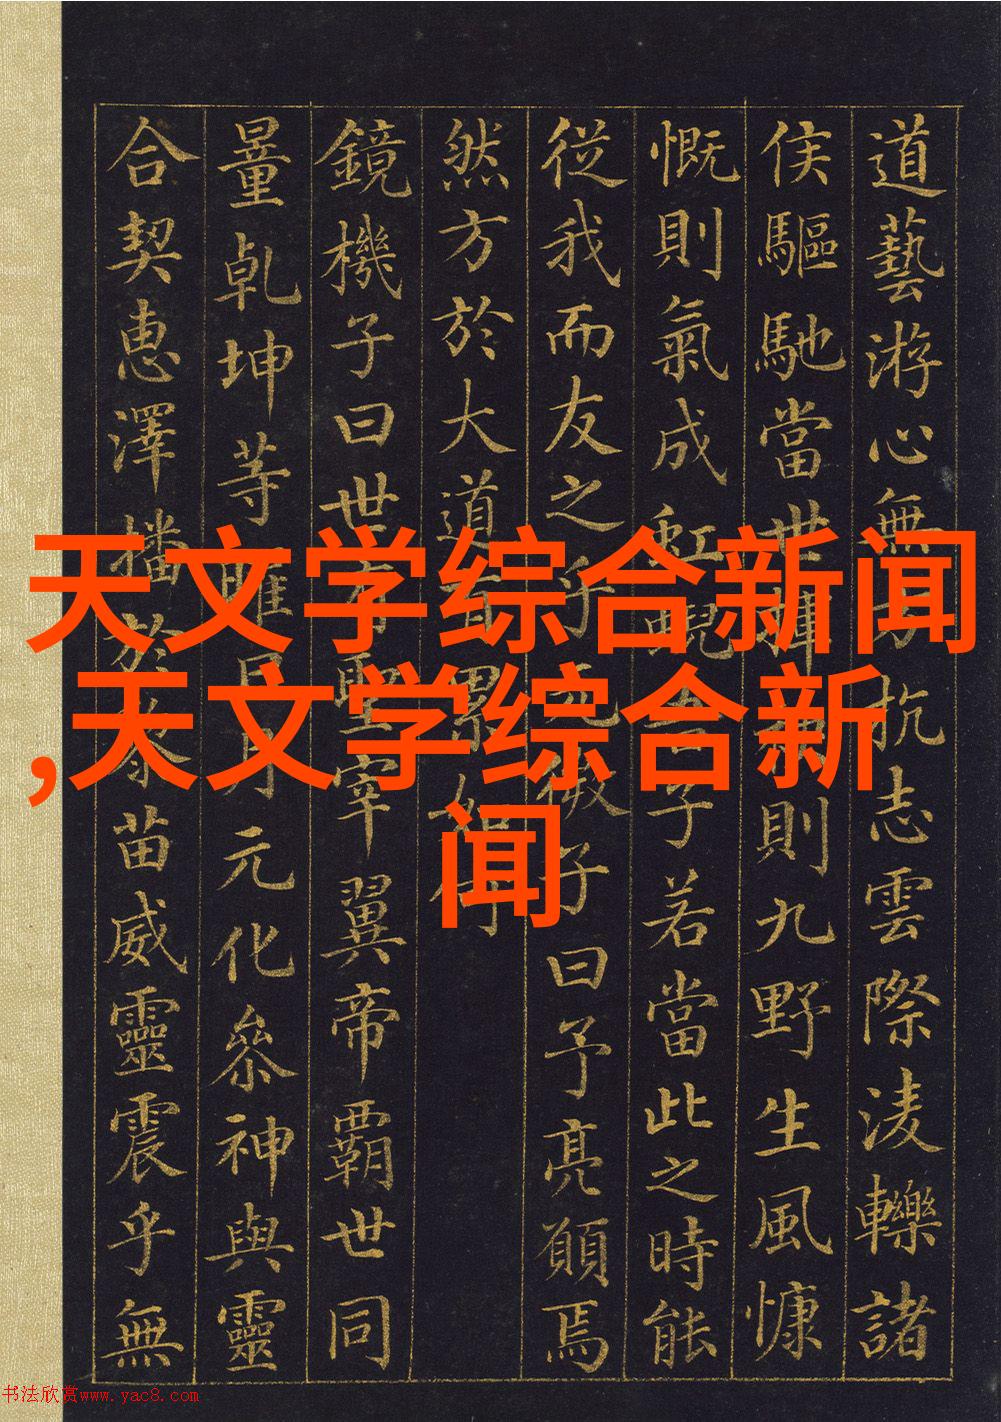 道藝游心無方抗志雲際淩轢諸
侯驅馳當世揮則九野生風慷
慨則氣成虹蜺吾子若當此之時能
從我而友之乎玄微子曰予亮願焉
然方於大道有累如何
鏡機子曰世有聖宰翼帝霸世同
量乾坤等曜日月元化參神與靈
合契惠澤播於黎苗威靈震乎無
天文学综合新闻
,天文学综合新
闻
书法欣赏www.yac8.com